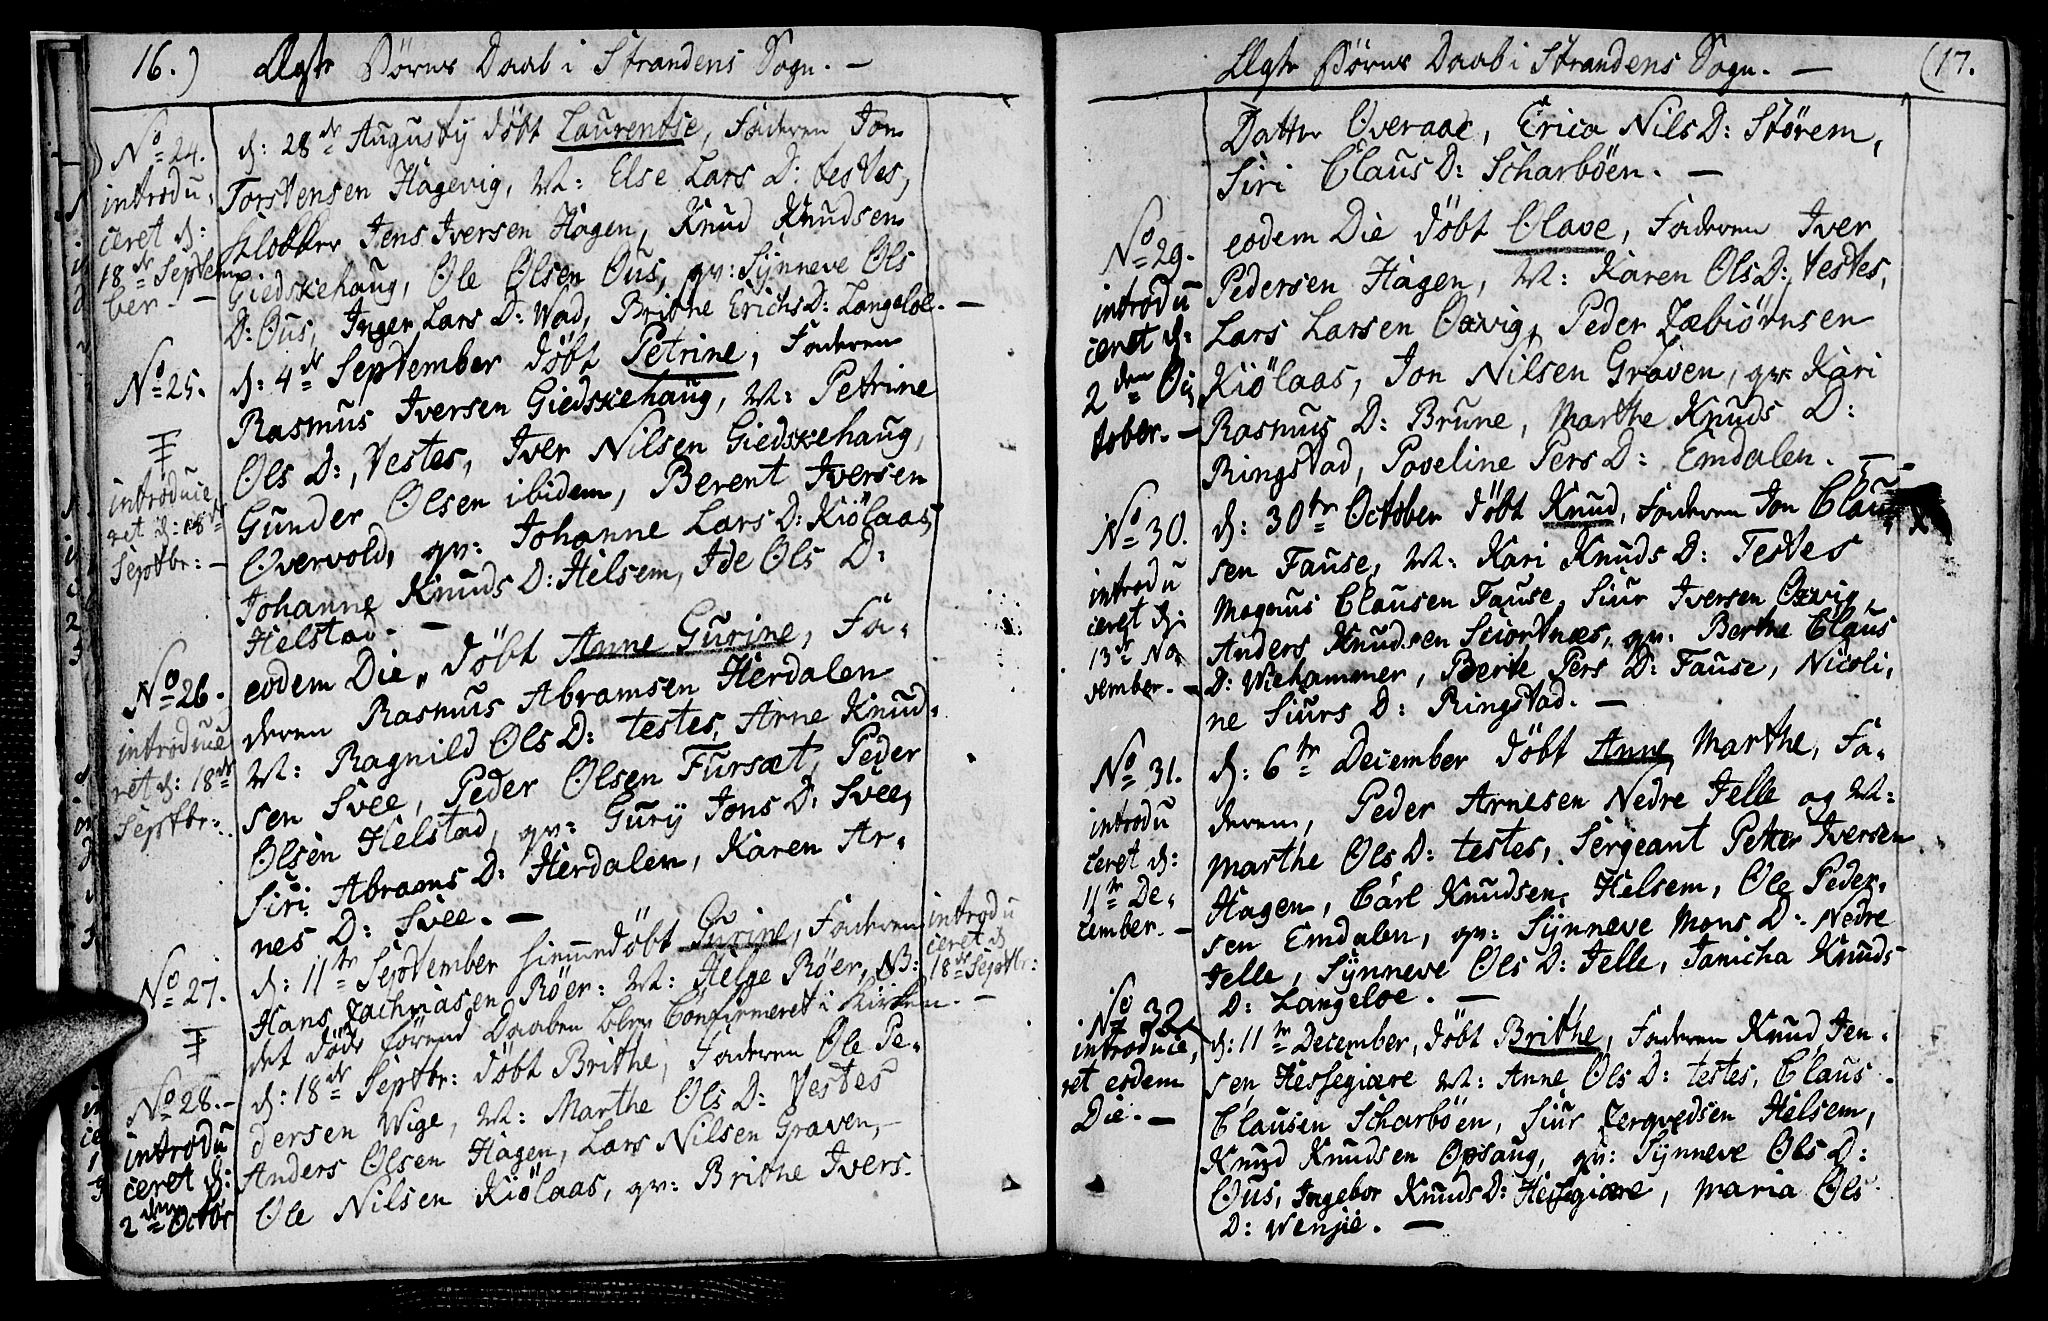 16.) Ægte Börns Daab i Strandens Sogn. —
No 24.
introdu
ceret d:
18de Septem
ber. —
d: 28de Augusty döbt Laurentse, Faderen Jon
Torstensen Hagevig, M: Else Lars D: testes,
Klokker Jens Iversen Hagen, Knud Knudsen
Giedskehaug, Ole Olsen Ous, qv: Synneve Ols
D: Ous, Inger Lars D: Wad, Brithe Erichs D: Langeloe. —
No 25.
introduce
ret d: 18de
Septbr: —
d: 4de September döbt Petrine, Faderen
Rasmus Iversen Giedskehaug, M: Petrine
Ols D:, Testes, Iver Nilsen Giedskehaug,
Gunder Olsen ibidem, Berent Iversen
Overvold, qv: Johanne Lars D: Kiölaas,
Johanne Knuds D: Helsem, Ide Ols D:
Helstad. —
No 26.
introduce
ret d: 18de
Septbr:
eodem Die, döbt Anne Gurine, Fa-
deren Rasmus Abramsen Herdalen
M: Ragnild Ols D: testes, Arne Knud-
sen Svee, Peder Olsen Fursæt, Peder
Olsen Helstad, qv: Gury Jons D: Svee,
Siri Abrams D: Herdalen, Karen Ar-
nes D: Svee. —
No 27.
d: 11te September hiemmedöbt Gurine, Faderen
Hans Zachriasen Röer: M: Helge Röer, NB:
det döde förend Daaben blev Confirmeret i Kirken. —
introdu
ceret d
18de Septbr:
No 28. —
introdu
ceret d:
2den Octbr
d: 18de Septbr: döbt Brithe, Faderen Ole Pe-
dersen Wige, M: Marthe Ols D: Testes
Anders Olsen Hagen, Lars Nilsen Graven, —
Ole Nilsen Kiölaas, qv: Brithe Ivers
Ægte Börns Daab i Strandens Sogn. — (17.
Datter Overaae, Erica Nils D: Störem,
Siri Claus D: Scharböen. —
No 29.
introdu
ceret d:
2den Oc
tober. —
eodem Die döbt Olave, Faderen Iver
Pedersen Hagen, M: Karen Ols D: testes,
Lars Larsen Oxvig, Peder Zebiörnsen
Kiölaas, Jon Nilsen Graven, qv: Kari
Rasmus D: Brune, Marthe Knuds D:
Ringstad, Poveline Pers D: Emdalen. —
No 30.
introdu
ceret d:
13de No
vember. —
d: 30te October döbt Knud, Faderen Jon Clau
sen Fause, M: Kari Knuds D: Testes
Magnus Clausen Fause, Siur Iversen Oxvig,
Anders Knudsen Sciortnæs, qv: Berthe Claus
D: Wiehammer, Berte Pers D: Fause, Nicoli-
ne Siurs D: Ringstad. —
No 31.
introdu
ceret d:
11te De-
cember. —
d: 6te December döbt Anne Marthe, Fa-
deren, Peder Arnesen Nedre Jelle og M:
Marthe Ols D: testes, Sergeant Petter Iversen
Hagen, Carl Knudsen Helsem, Ole Peder-
sen Emdalen, qv: Synneve Mons D: Nedre
Jelle, Synneve Ols D: Jelle, Janicha Knuds
D: Langeloe. —
No 32
introduce,
ret eodem
Die. —
d: 11te December, döbt Brithe, Faderen Knud Jen-
sen Hessegiære M: Anne Ols D: testes, Claus
Clausen Scharböen, Siur Zergvedsen Helsem,
Knud Knudsen Opsaug, qv: Synneve Ols D:
Ous, Ingebor Knuds D: Hessegiære, Maria Ols
D: Wensie. —